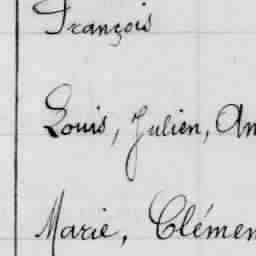 François
Louis, Julien, An
Marie, Clémen